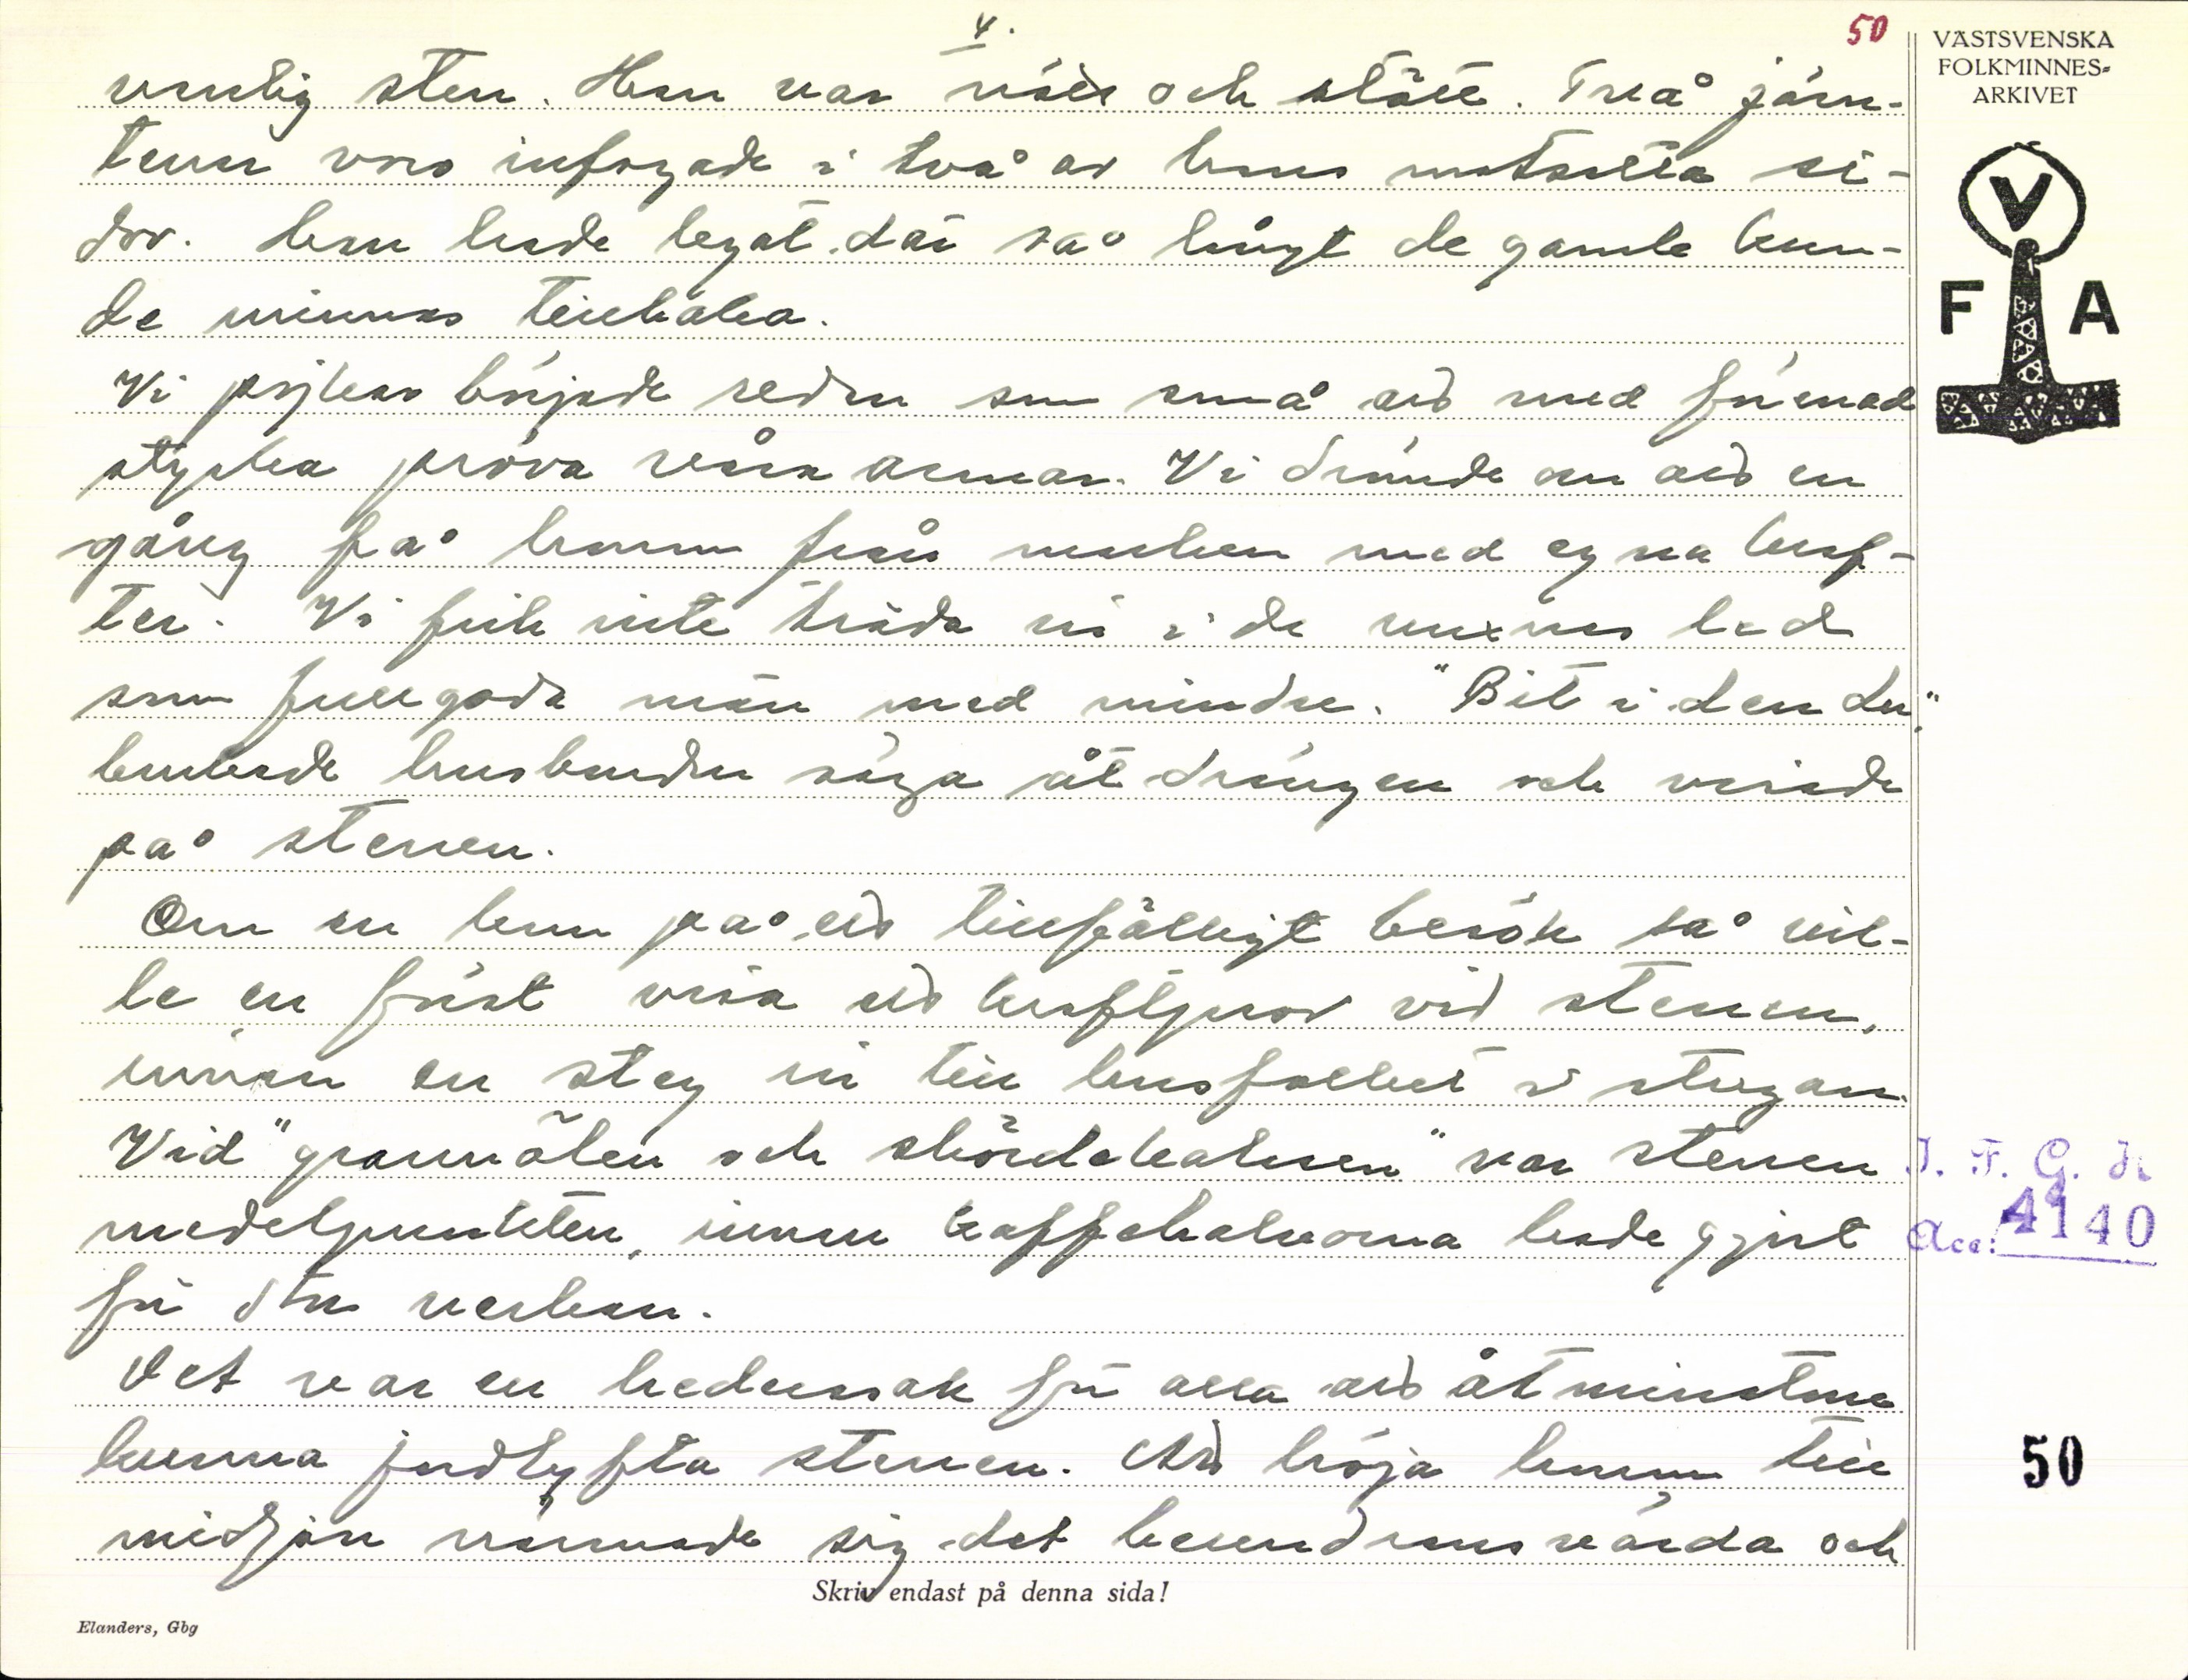 4.
50
VÄSTSVENSKA
FOLKMINNES-
ARKIVET
V
F A
vanlig sten. Han var nött och slätt. Två järn-
tenar voro infogade i två av hans motsatta si-
dor. Han hade legat där så långt de gamle kun-
de minnas tillbaka.
Vi pojkar började redan som små att med förenad
styrka pröva våra armar. Vi drömde om att en
gång få honom från marken med egna kraf-
ter. Vi fick inte träda in i de vuxnas led
som fullgoda män med mindre. "Bit i den du",
brukade husbonden säga åt drängen och visade
på stenen.
Om en kom på ett tillfälligt besök så vil-
le en först visa ett kraftprov vid stenen,
innan en steg in till husfolket i stugan.
Vid "grannölen och skördekalasen" var stenen
medelpunkten, innan kaffehalvorna hade gjort
för stor verkan.
Det var en hederssak för alla att åtminstone
kunna jordlyfta stenen. Att höja honom till
midjan närmade sig det beundransvärda och
I. F. G. H
Acc: 4140
50
Skriv endast på denna sida!
Elanders, Gbg